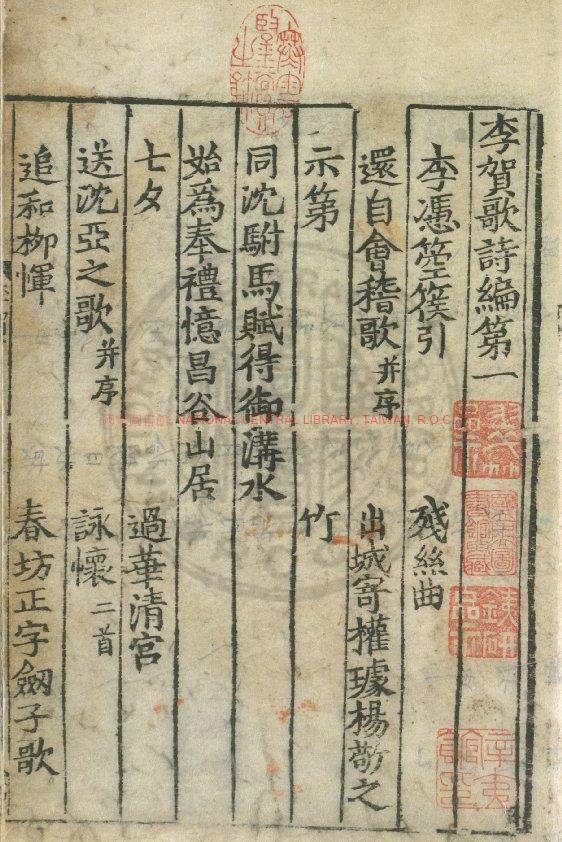 李賀歌詩編第一
李憑箜篌引 殘絲曲
還自會稽歌 并序 出城寄權璩楊敬之
示弟 竹
同沈駙馬賦得御溝水
始為奉禮憶昌谷山居
七夕 過華清宮
送沈亞之歌 并序 詠懷 二首
追和柳惲 春坊正字劔子歌
國家圖書館 NATIONAL CENTRAL LIBRARY, TAIWAN, R.O.C.